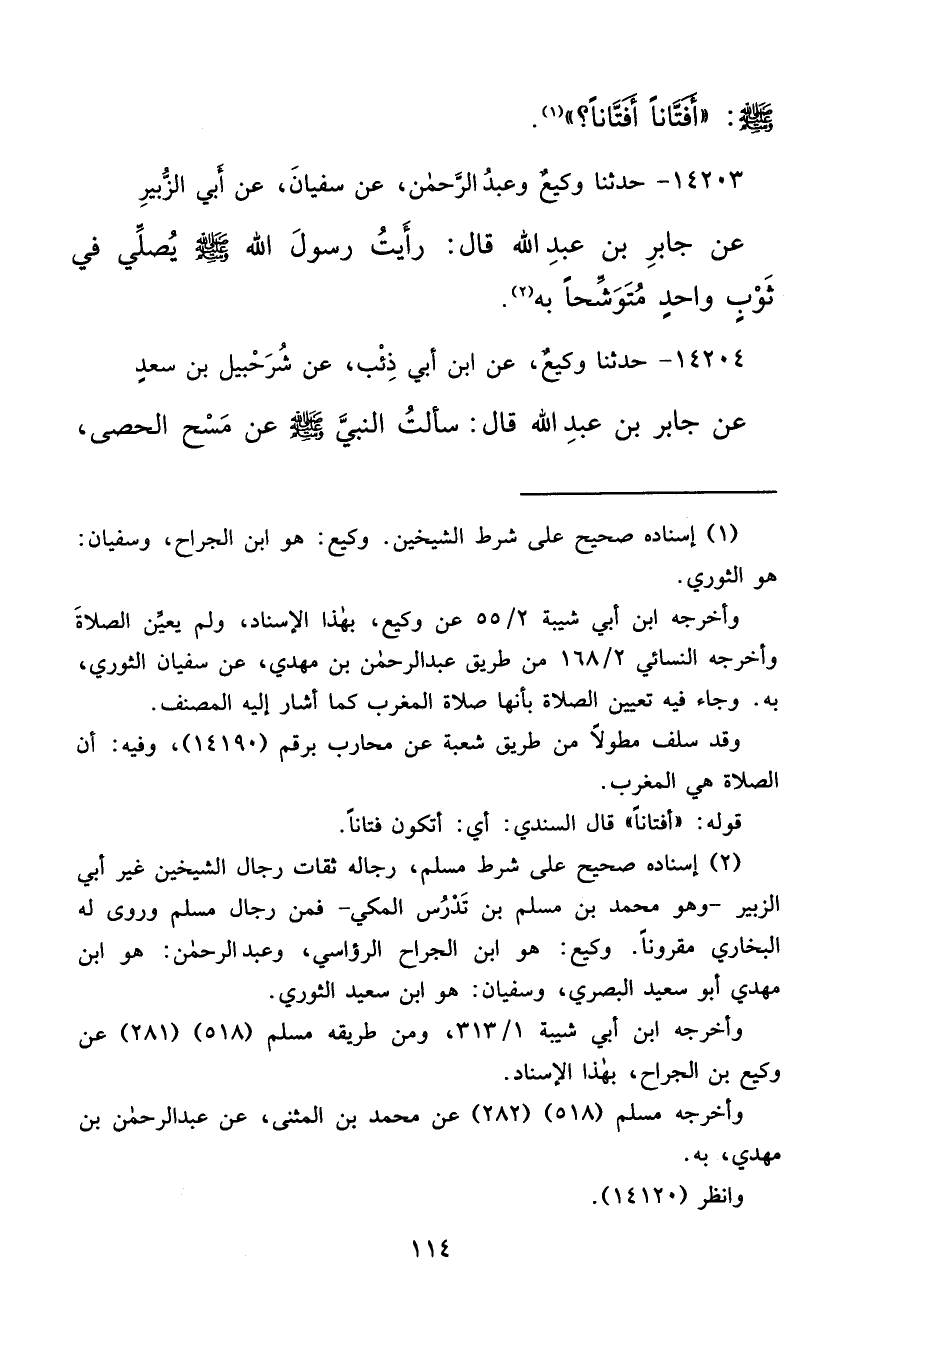 ﷺ: «أَفَتَّاناً أَفَتَّاناً؟»(١).
١٤٢٠٣- حدثنا وكيعٌ وعبدُ الرَّحمٰن، عن سفيانَ، عن أَبي الزُّبيرِ
عن جابرِ بن عبدِ الله قال: رأَيتُ رسولَ الله ﷺ يُصلِّي في
ثَوْبٍ واحدٍ مُتَوَشِّحاً به(٢).
١٤٢٠٤- حدثنا وكيعٌ، عن ابن أبي ذِئْب، عن شُرَحْبيل بن سعدٍ
عن جابر بن عبدِ الله قال: سألتُ النبيَّ ﷺ عن مَسْح الحصى،
(١) إسناده صحيح على شرط الشيخين. وكيع: هو ابن الجراح، وسفيان:
هو الثوري.
وأخرجه ابن أبي شيبة ٥٥/٢ عن وكيع، بهٰذا الإسناد، ولم يعيِّن الصلاةَ
وأخرجه النسائي ١٦٨/٢ من طريق عبدالرحمٰن بن مهدي، عن سفيان الثوري،
به. وجاء فيه تعيين الصلاة بأنها صلاة المغرب كما أشار إليه المصنف.
وقد سلف مطولاً من طريق شعبة عن محارب برقم (١٤١٩٠)، وفيه: أن
الصلاة هي المغرب.
قوله: «أفتاناً» قال السندي: أي: أتكون فتاناً.
(٢) إسناده صحيح على شرط مسلم، رجاله ثقات رجال الشيخين غير أبي
الزبير -وهو محمد بن مسلم بن تَدْرُس المكي- فمن رجال مسلم وروى له
البخاري مقروناً. وكيع: هو ابن الجراح الرؤاسي، وعبدالرحمٰن: هو ابن
مهدي أبو سعيد البصري، وسفيان: هو ابن سعيد الثوري.
وأخرجه ابن أبي شيبة ٣١٣/١، ومن طريقه مسلم (٥١٨) (٢٨١) عن
وكيع بن الجراح، بهٰذا الإسناد.
وأخرجه مسلم (٥١٨) (٢٨٢) عن محمد بن المثنى، عن عبدالرحمٰن بن
مهدي، به.
وانظر (١٤١٢٠).
١١٤